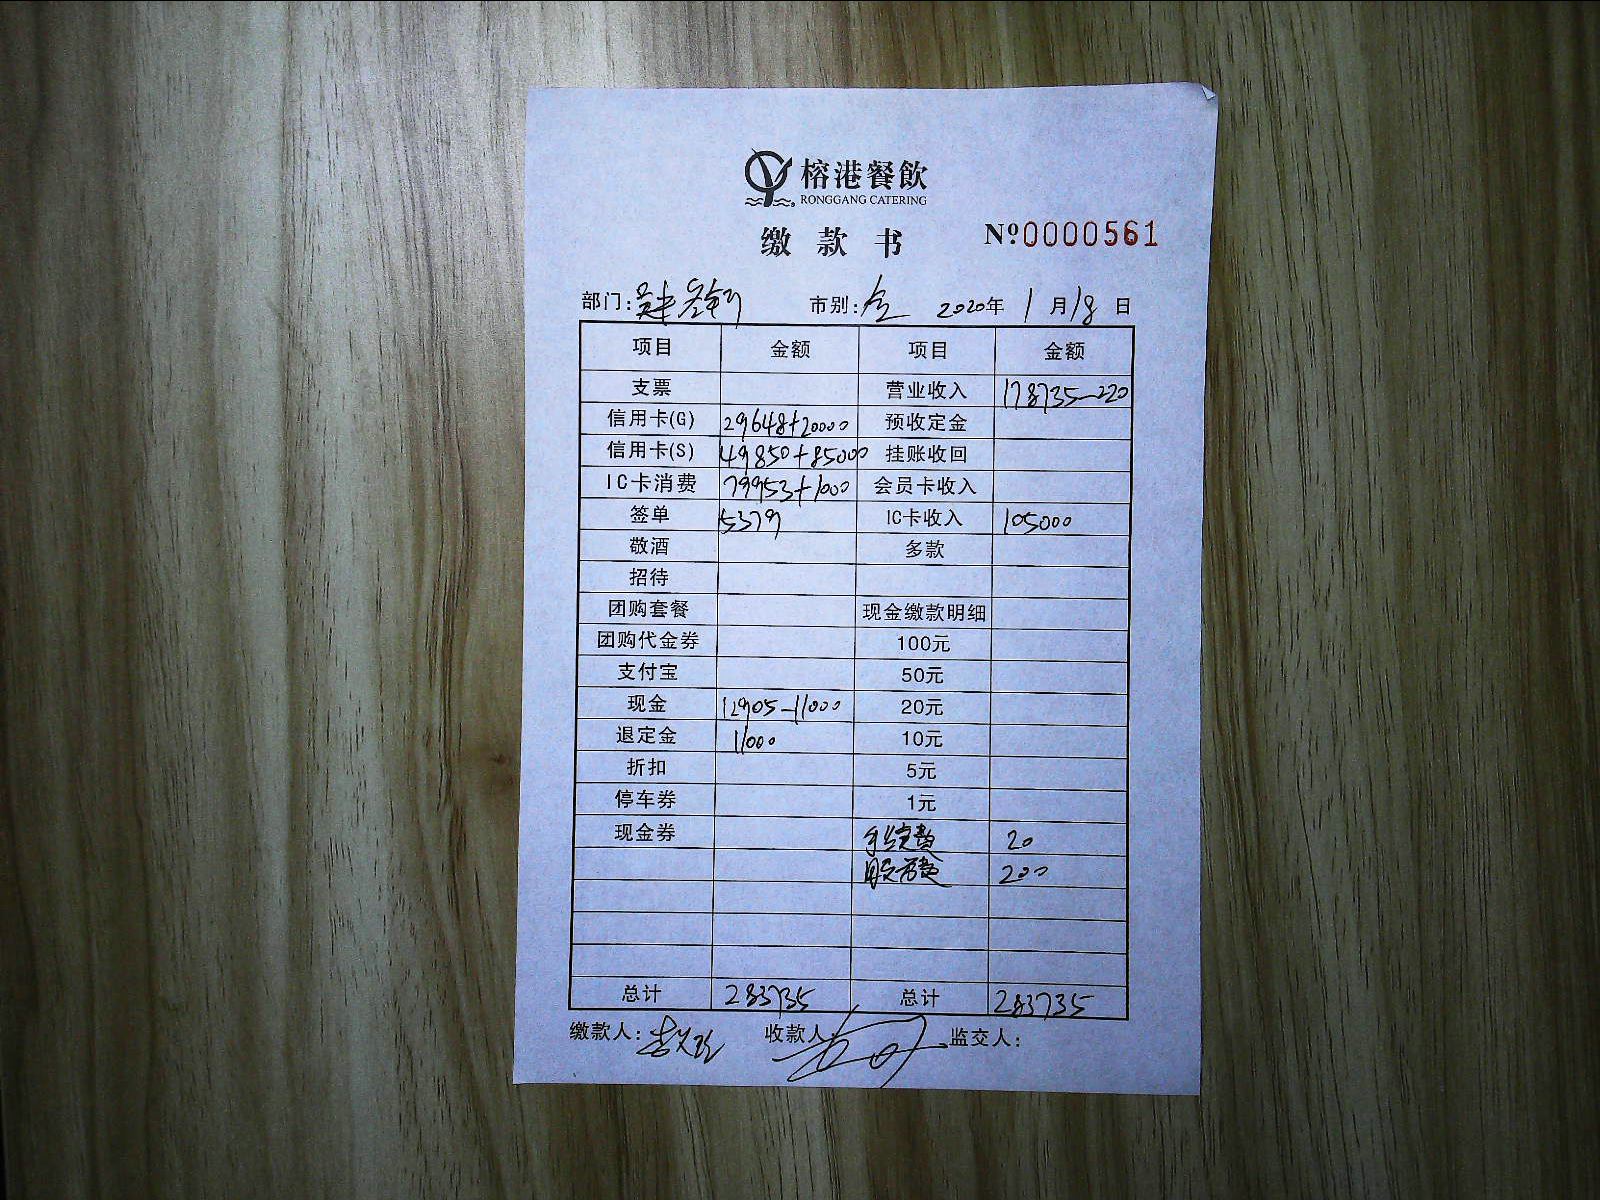 榕港餐飲
RONGGANG CATERING
缴款书 Nº0000561
部门: 市别:全 2020年1月18日
项目 金额 项目 金额
支票 营业收入 178735-220
信用卡(G) 29648+20000 预收定金
信用卡(S) 49850+85000 挂账收回
IC卡消费 79953+1000 会员卡收入
签单 5379 IC卡收入 105000
敬酒 多款
招待
团购套餐 现金缴款明细
团购代金券 100元
支付宝 50元
现金 12905-11000 20元
退定金 11000 10元
折扣 5元
停车券 1元
现金券 手续费 20
服务费 200
总计 283735 总计 283735
缴款人: 收款人: 监交人: